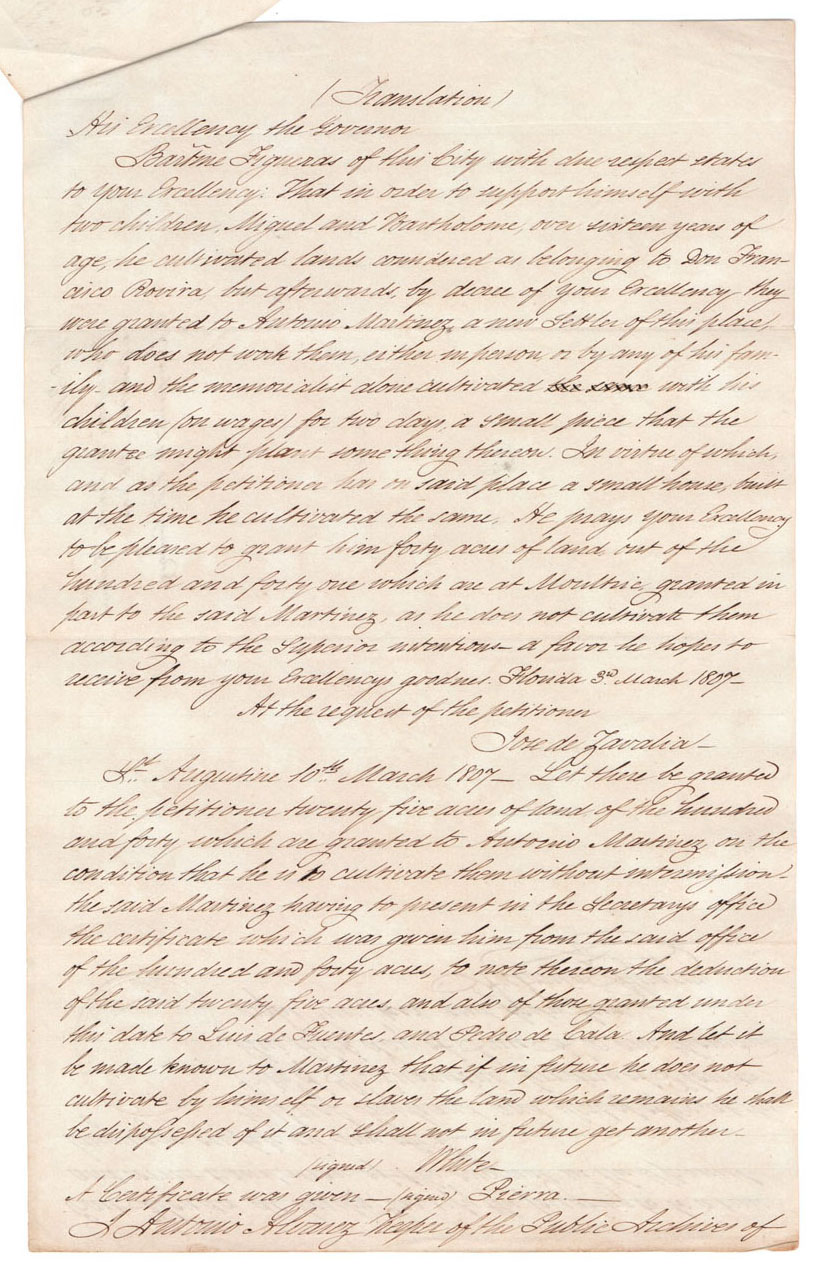 (Translation)
His Excellency the Governor
Bartme Figueras of this City with due respect states
to your Excellency: That in order to support himself with
two children, Miguel and Bartholome, over sixteen years of
age, he cultivated lands considered as belonging to Don Fran-
cisco Rovira, but afterwards, by decree of Your Excellency they
were granted to Antonio Martinez, a new Settler of this place,
who does not work them, either in person, or by any of his fam-
-ily. and the memorialist alone cultivated with his
children (on wages) for two days, a small piece that the
grantee might plant some thing thereon. In virtue of which,
and as the petitioner has on said place a small house, built
at the time he cultivated the same. He prays your Excellency
to be pleased to grant him forty acres of land out of the
hundred and forty one which are at Moultrie, granted in
part to the said Martinez, as he does not cultivate them
according to the Superior intentions - a favor he hopes to
receive from your Excellencys goodness. Florida 3rd March 1807 -
At the request of the petitioner
Jose de Zavalia -
St. Augustine 10th March 1807 - Let there be granted
to the petitioner twenty five acres of land, of the hundred
and forty which are granted to Antonio Martinez, on the
condition that he is to cultivate them without intermission.
the said Martinez having to present in the Secretarys office
the certificate which was given him from the said office
of the hundred and forty acres, to note thereon the deduction
of the said twenty five acres, and also of those granted under
this date to Luis de Fuentes, and Pedro de Cala. And let it
be made known to Martinez that if in future he does not
cultivate by himself or slaves the land which remains he shall
be dispossessed of it and shall not in future get another -
(signed) White -
A Certificate was given - (signed) Pierra. -
I Antonio Alvarez Keeper of the Public Archives of